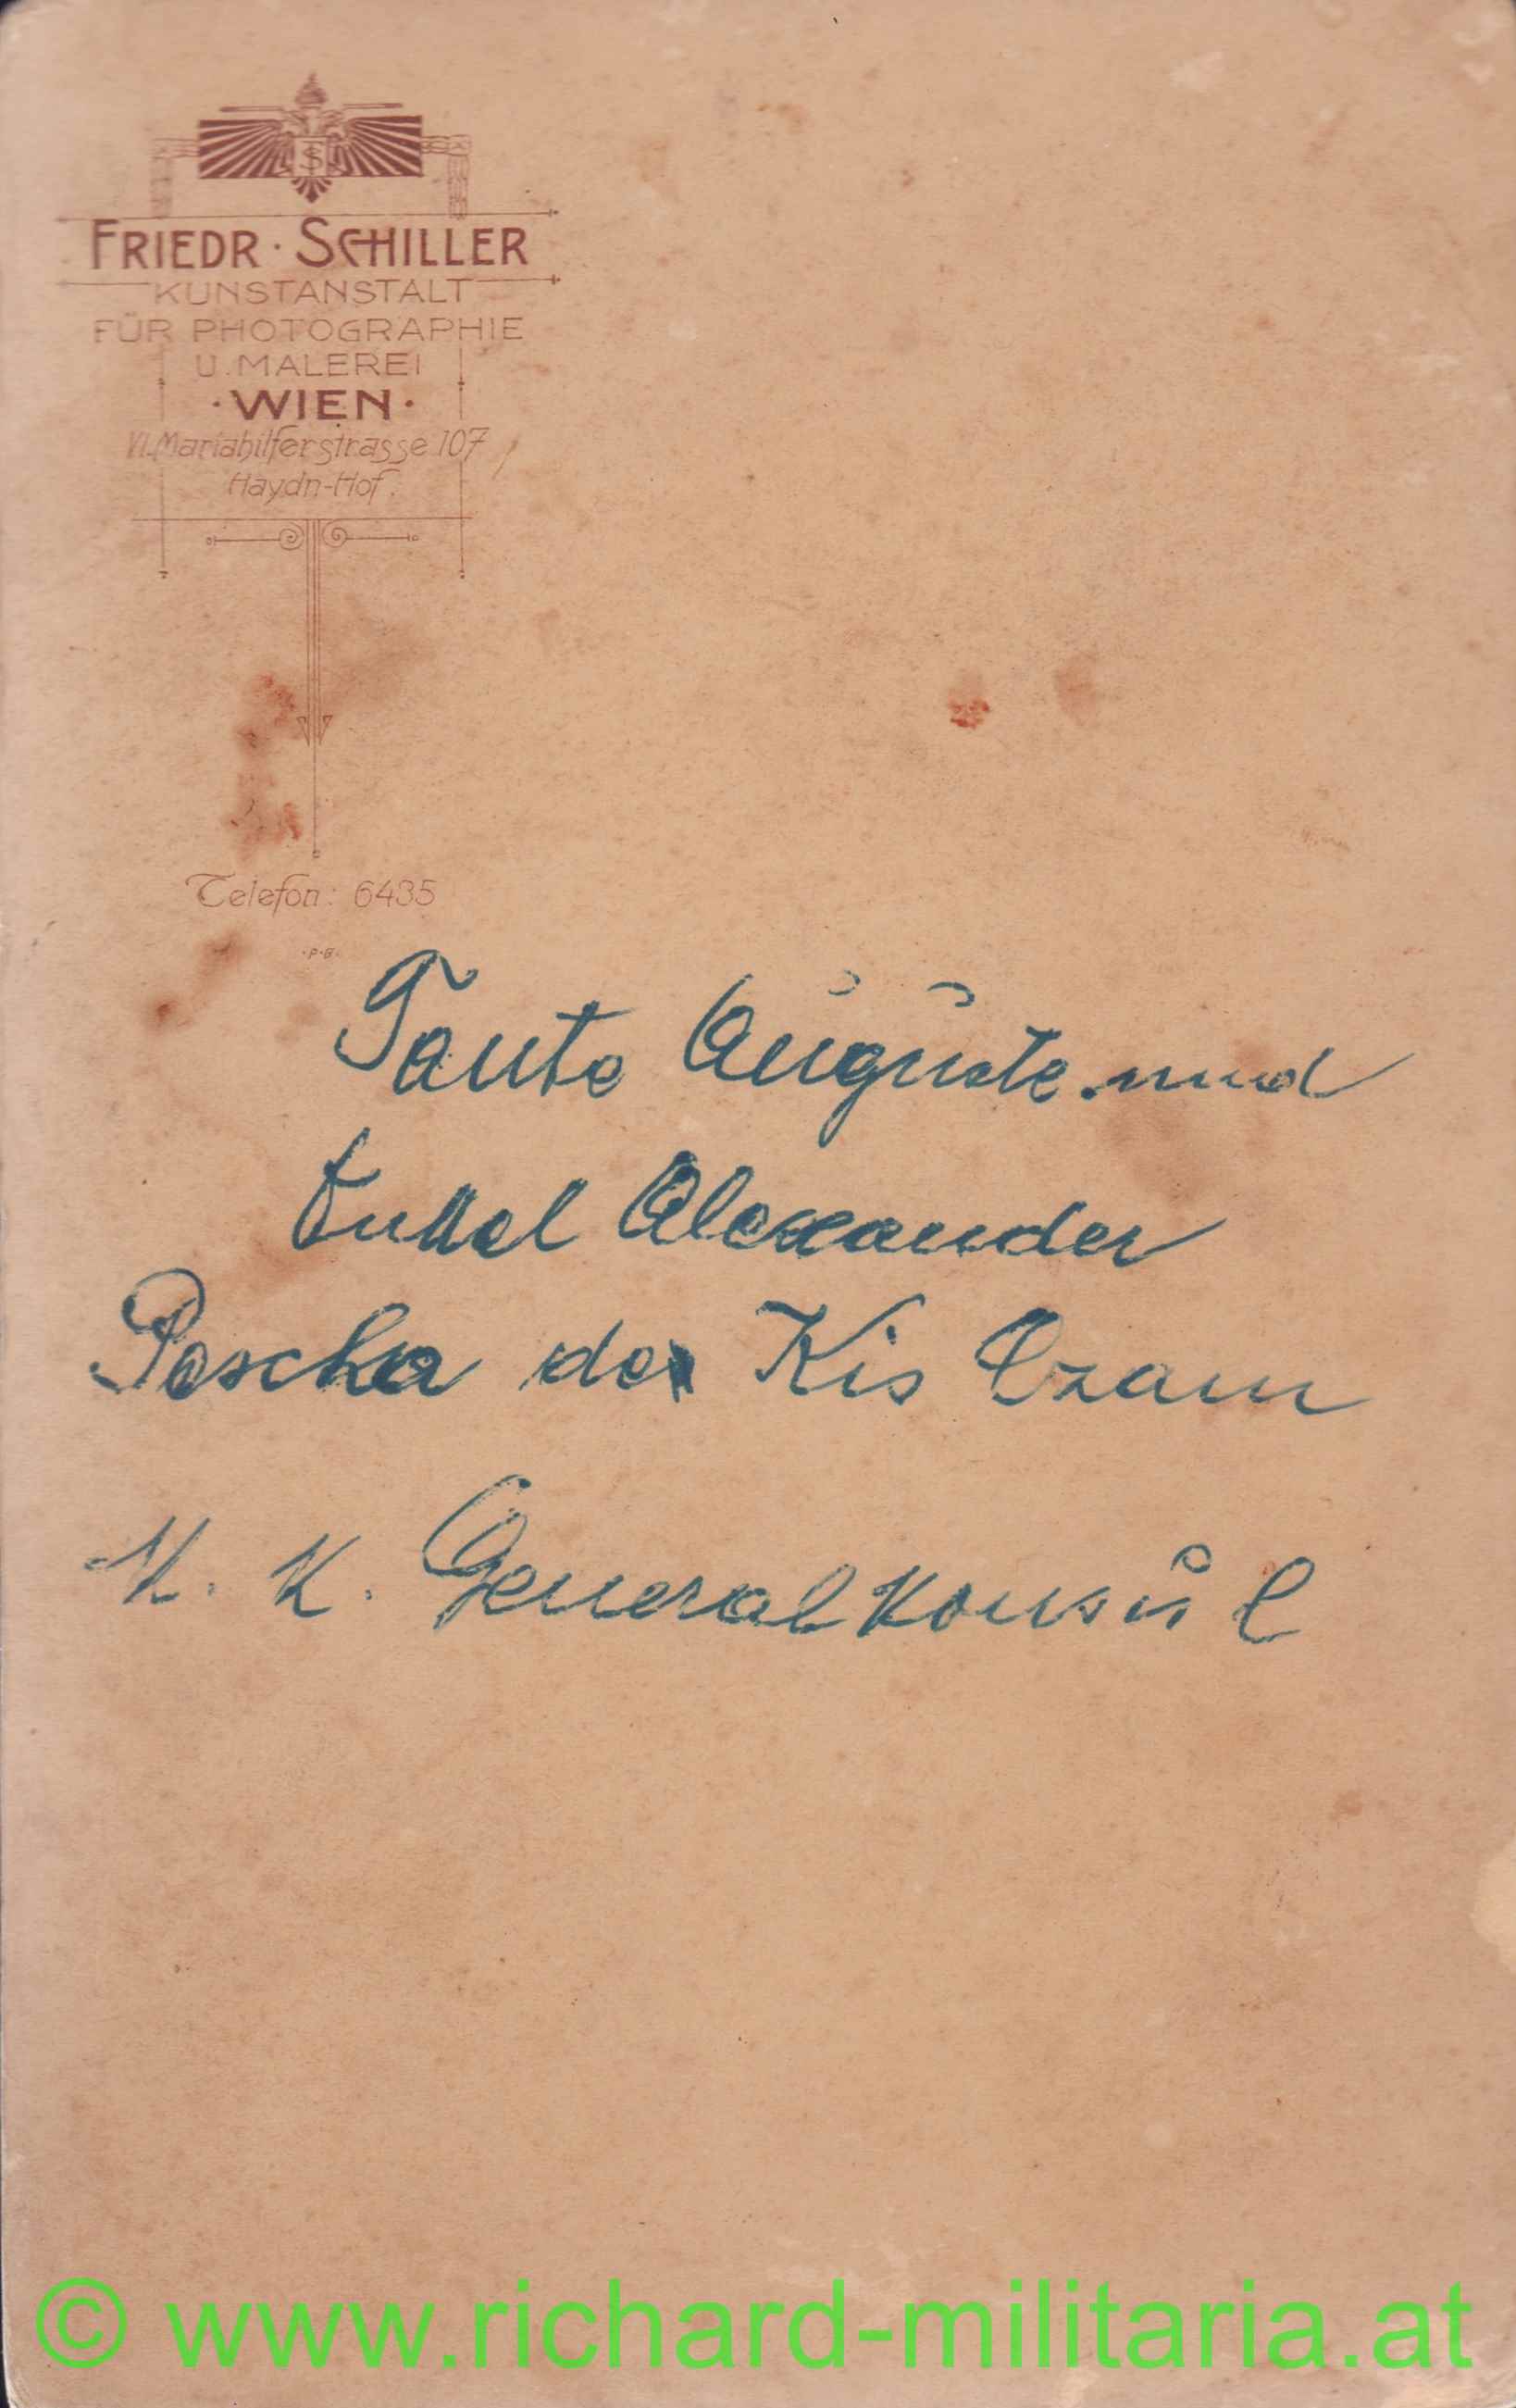 FRIEDR · SCHILLER
KUNSTANSTALT
FÜR PHOTOGRAPHIE
U. MALEREI
· WIEN ·
VI. Mariahilferstrasse 107
Haydn-Hof.
Telefon: 6435
·P·B·
Tante Auguste und
Onkel Alexander
Pascha de Kis Ozam
K. K. Generalkonsul
© www.richard-militaria.at